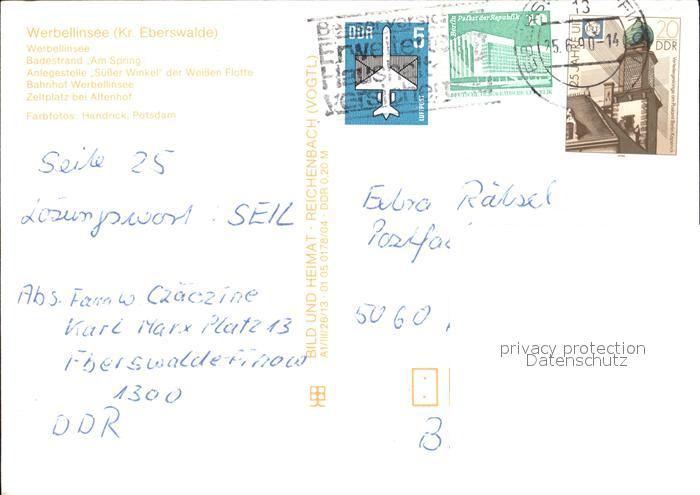 Werbellinsee (Kr. Eberswalde)
Werbellinsee
Badestrand „Am Spring"
Anlegestelle „Süßer Winkel" der Weißen Flotte
Bahnhof Werbellinsee
Zeltplatz bei Altenhof
Farbfotos: Handrick, Potsdam
DDR 5
LUFTPOST
Berlin, Palast der Republik 10
DEUTSCHE DEMOKRATISCHE REPUBLIK
20
DDR
13
25.6.90-14
Seite 25
Lösungswort: SEIL
Abs. Famw Czäczine
Karl Marx Platz 13
Eberswalde-Finow
1300
DDR
BILD UND HEIMAT · REICHENBACH (VOGTL)
A1/III/26/13 · 01 05 0178/04 · DDR 0,20 M
Extra Rätsel
Postfac
5060
B
privacy protection
Datenschutz